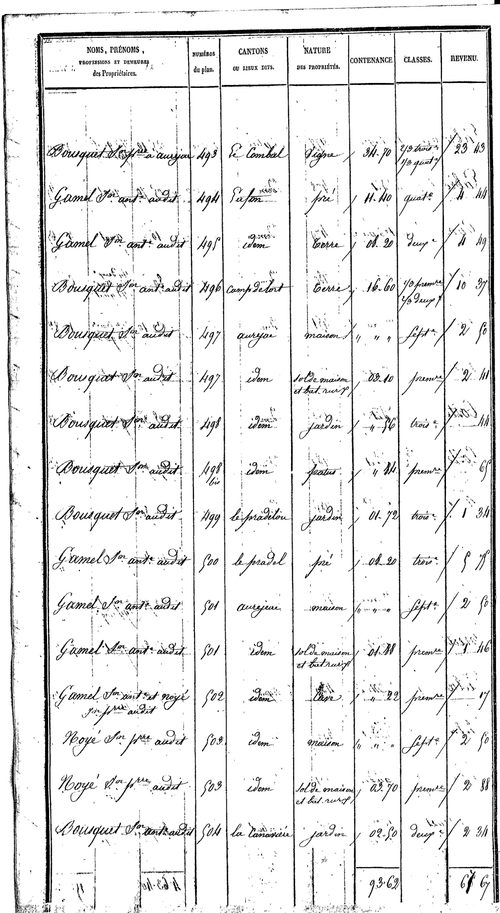 NOMS, PRÉNOMS, PROFESSIONS ET DEMEURES des Propriétaires. NUMÉROS du plan. CANTONS OU LIEUX DITS. NATURE DES PROPRIÉTÉS. CONTENANCE CLASSES. REVENU.
Bousquet Jn pre a auryac 493 Le Combal Vigne 34.70 2/3 trois e 1/3 quat e 23 43
Gamel Jn ant e audit 494 pré 11.40 quat e 4 44
Gamel Jn ant e audit 495 idem terre 08.20 deux e 4 49
Bousquet Jn ant e audit 496 camp delort terre 16.60 1/3 prem re 2/3 deux e 10 37
Bousquet Jn audit 497 auryac maison " " " sept e 2 50
Bousquet Jn audit 497 idem sol de maison et bat. rural 03.10 prem re 2 41
Bousquet Jn audit 498 idem jardin " 56 trois e 44
Bousquet Jn audit 498 bis idem patus " 84 prem re 65
Bousquet Jn audit 499 le praditou jardin 01.72 trois e 1 34
Gamel Jn ant e audit 500 le pradel pré 08.20 trois e 5 75
Gamel Jn ant e audit 501 maison " " " sept e 2 50
Gamel Jn ant e audit 501 idem sol de maison et bat. rural 01.88 prem re 1 46
Gamel Jn ant e et Noyé Jn pre audit 502 idem " 22 prem re 17
Noyé Jn pre audit 503 idem maison " " " sept e 2 50
Noyé Jn pre audit 503 idem sol de maison et bat. rural 03.70 prem re 2 88
Bousquet Jn ant e audit 504 jardin 02.50 deux e 2 34
93.62 67 67